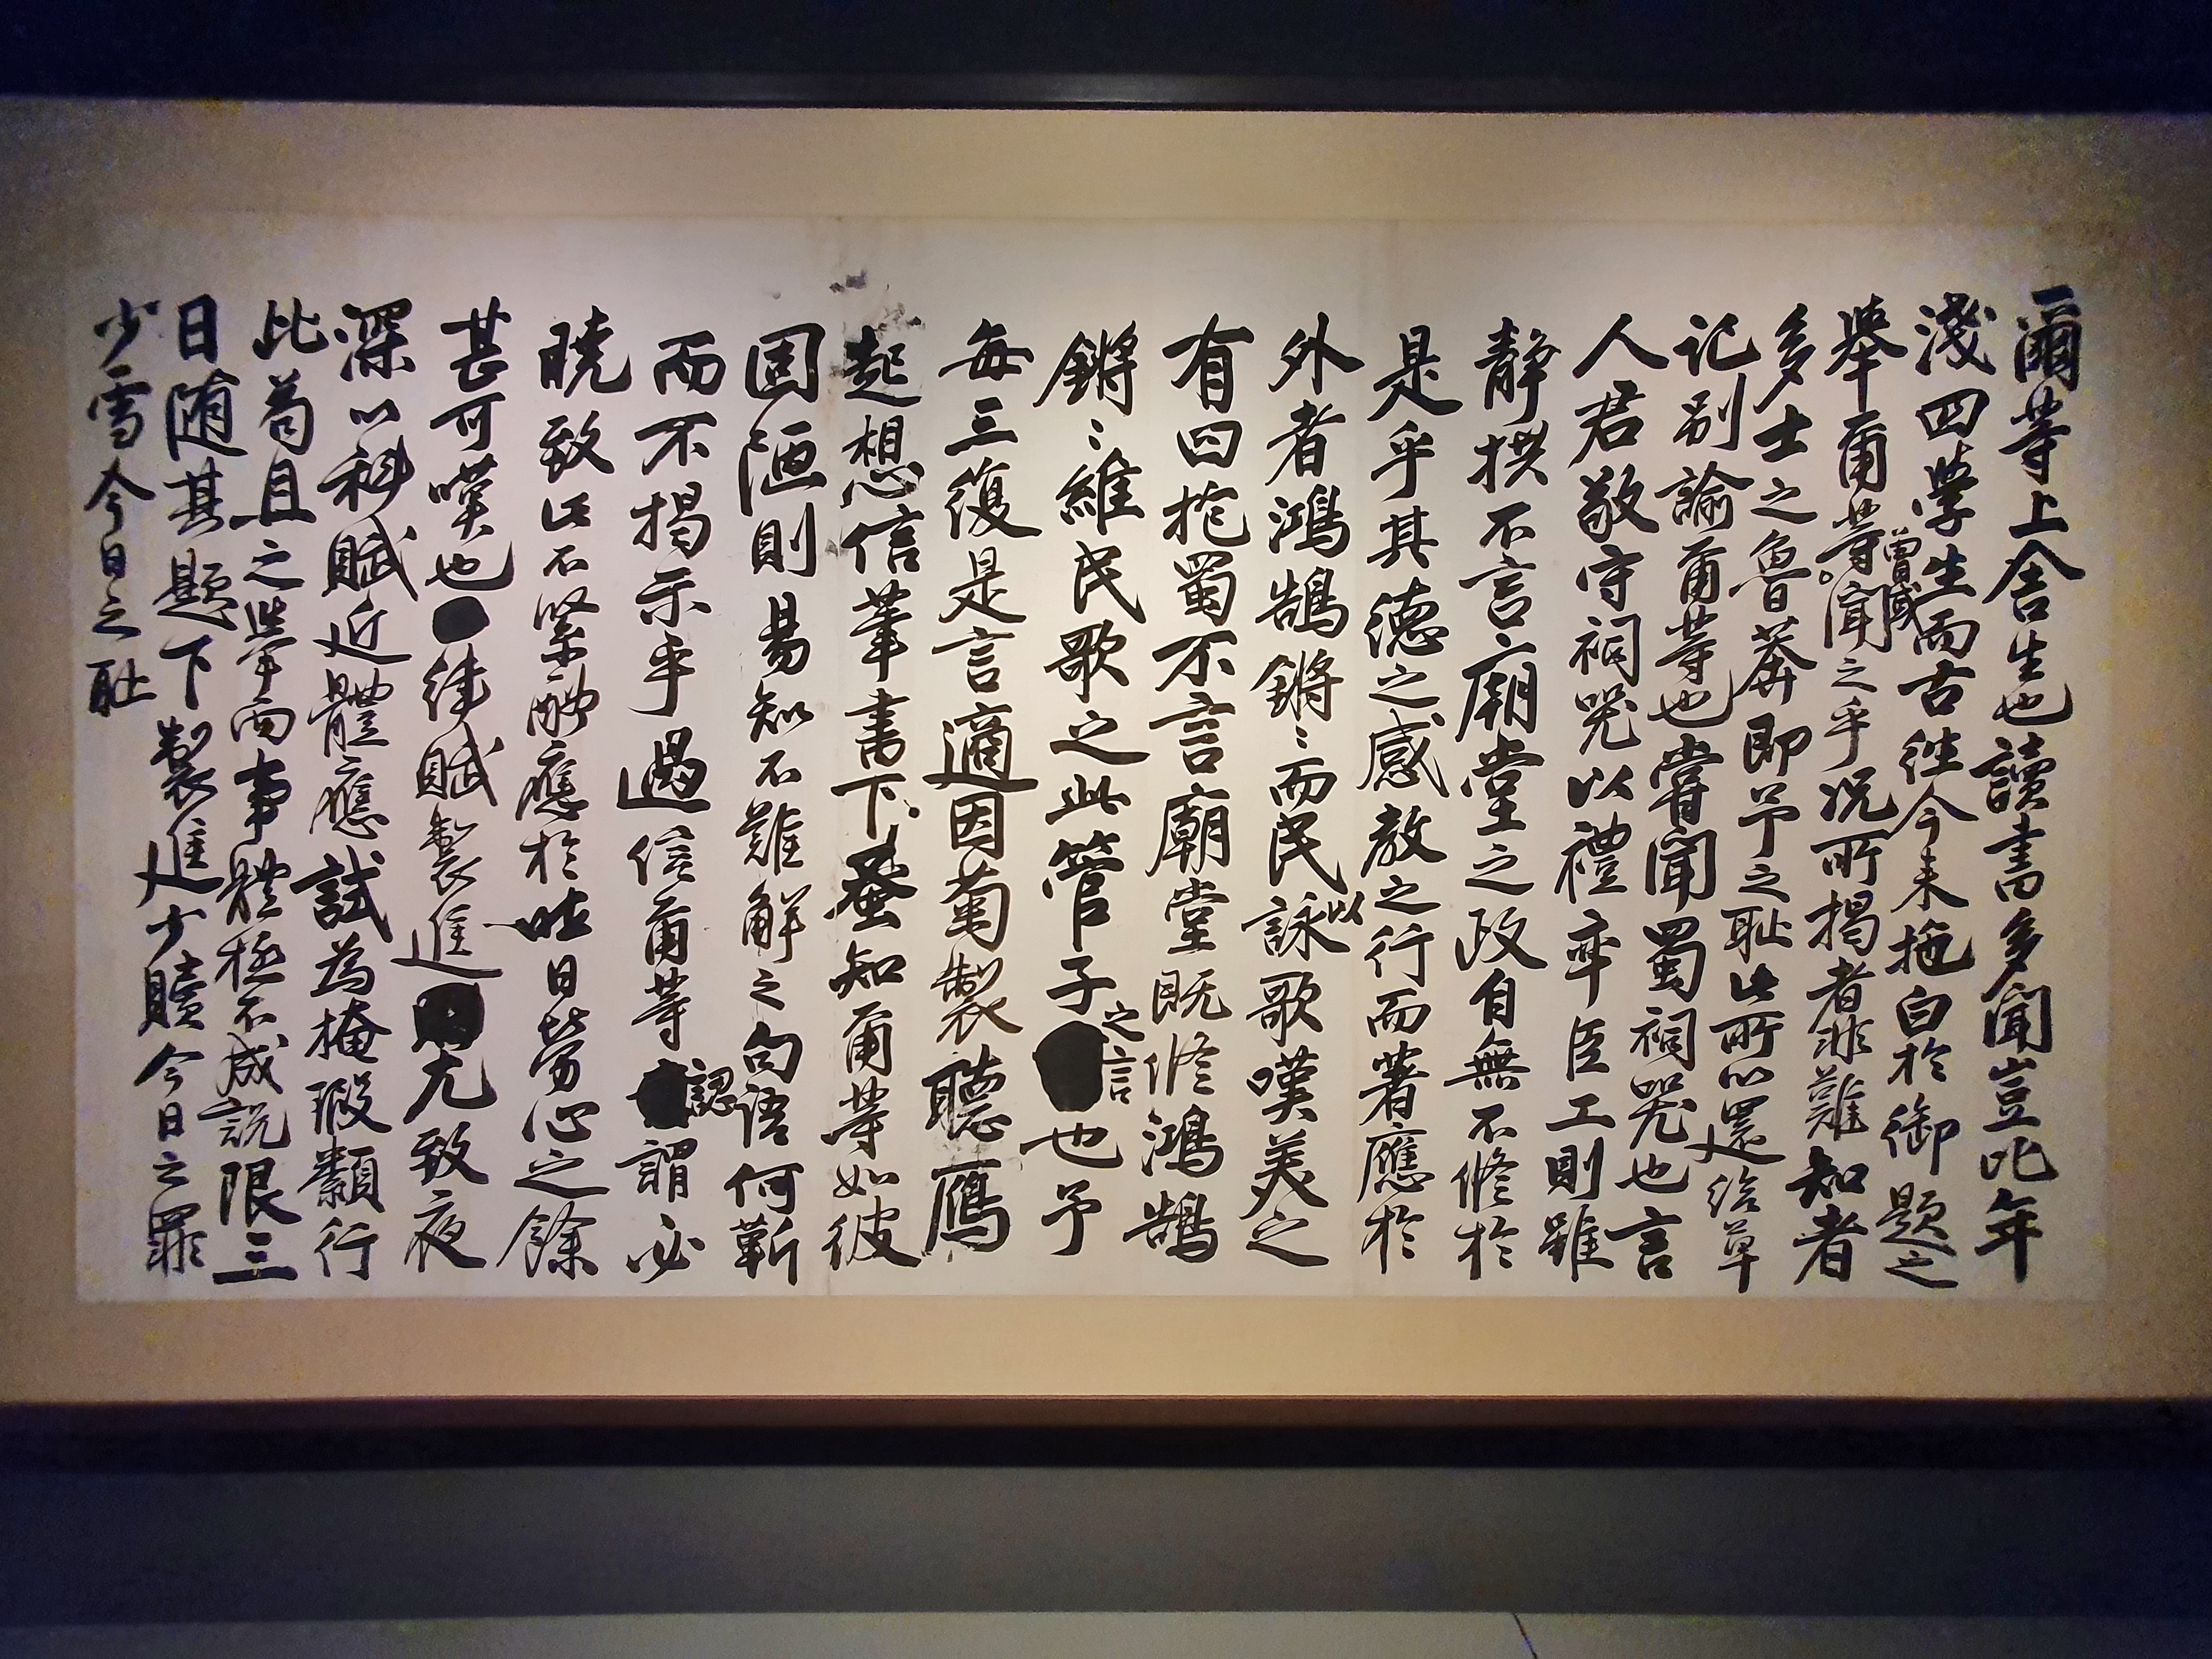 爾等上舍生也讀書多聞豈比年
淺四學生而古往今来拖白於御題之
舉爾等曾或聞之乎况所揭者非難知者
多士之魯莽即予之耻此所以還給草
记别諭爾等也嘗聞蜀祠咒也言
人君敬守祠咒以禮率臣工則雖
静拱不言廟堂之政自無不修於
是乎其德之感教之行而著應於
外者鴻鵠鏘〻而民以詠歌嘆美之
有曰抱蜀不言廟堂既修鴻鵠
鏘〻維民歌之此管子之言也予
每三復是言適因菊製聽鴈
起想信筆書下蚤知爾等如彼
固陋則易知不難解之句語何靳
而不揭示乎過信爾等認謂必
曉致此不緊酬應於吐日勞心之餘
甚可嘆也徒賦製進尤致夜
深以科賦近體應試為掩瑕纇行
比苟且之擧而事體極不成説限三
日随其題下製進少贖今日之罪
少雪今日之耻